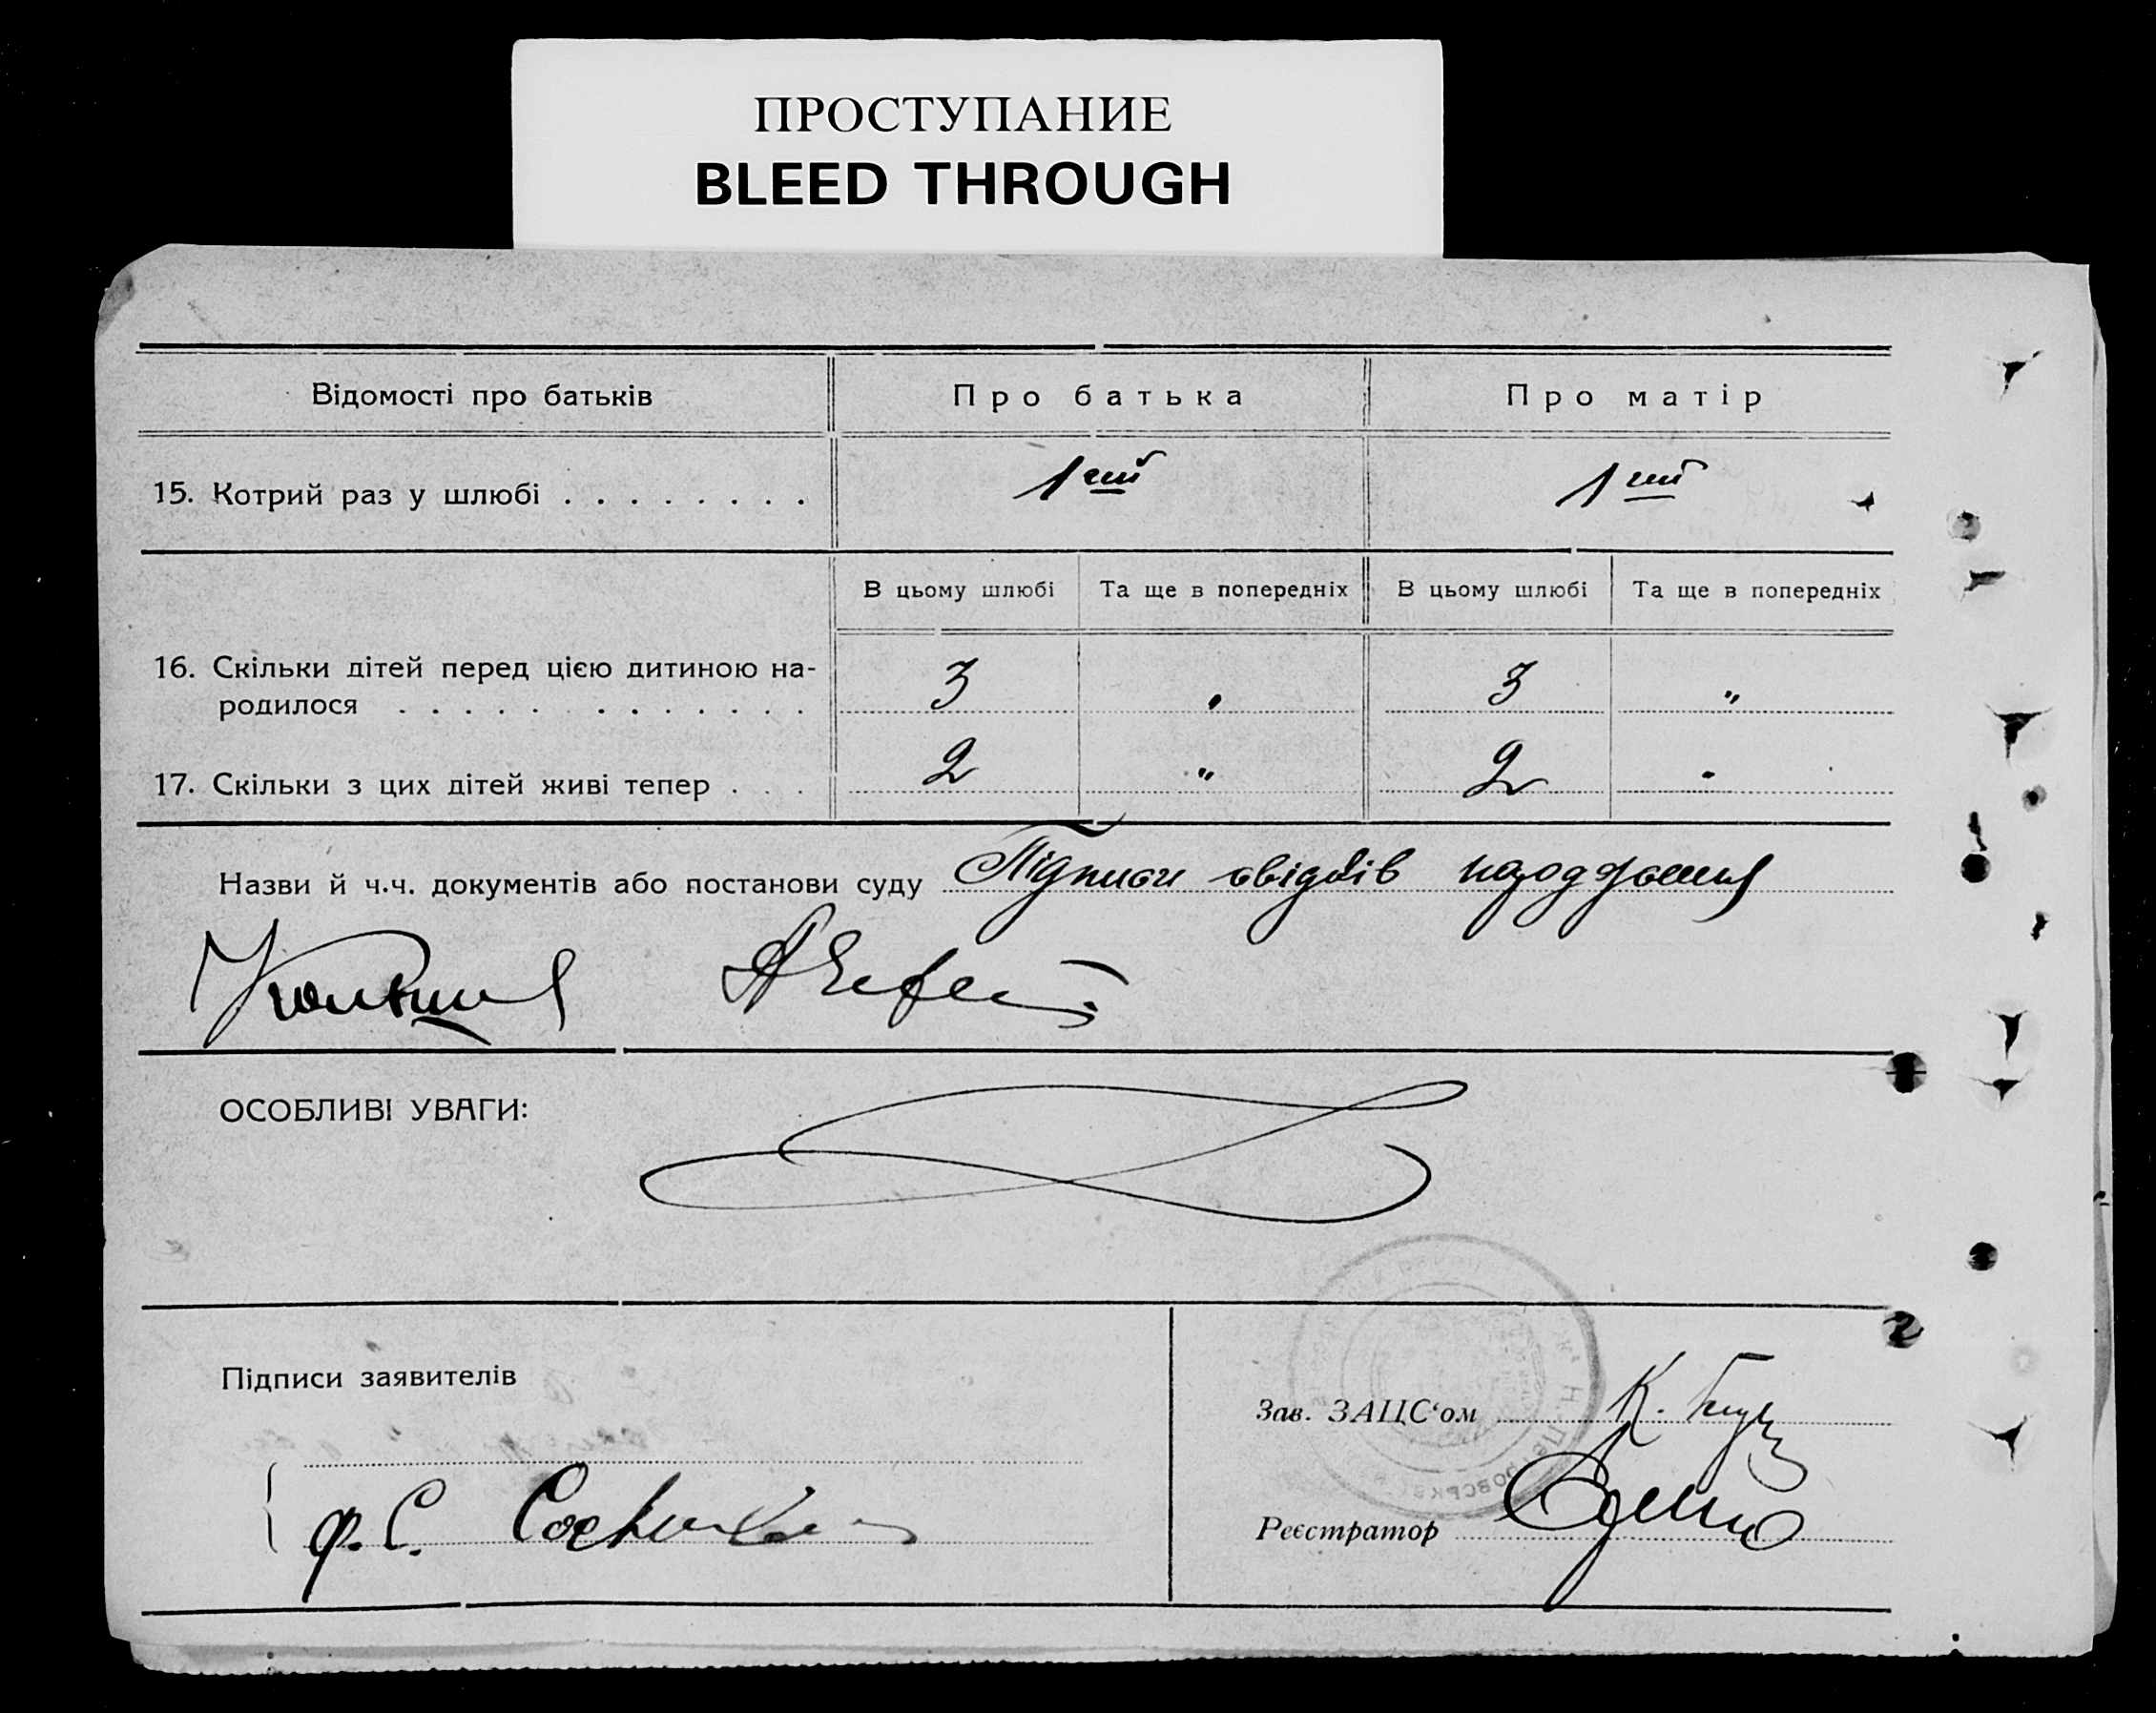 ПРОСТУПАНИЕ
BLEED THROUGH
Відомості про батьків Про батька Про матір
15. Котрий раз у шлюбі . . . . . . . . 1ший 1ший
В цьому шлюбі Та ще в попередніх В цьому шлюбі Та ще в попередніх
16. Скільки дітей перед цією дитиною на-
родилося . . . . . . . . . . . . . 3 „ 3 „
17. Скільки з цих дітей живі тепер . . . 2 „ 2 „
Назви й ч.ч. документів або постанови суду Підписи свідків
ОСОБЛИВІ УВАГИ:
Підписи заявителів
Зав. ЗАЦС‘ом К.
Ф. С.
Реєстратор